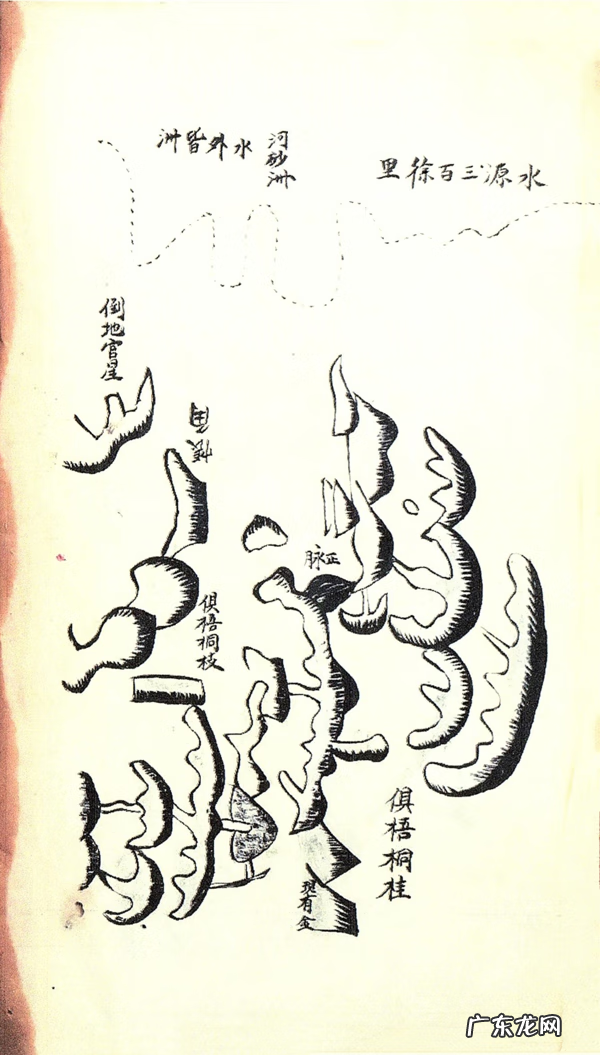 水源三百徐里
河砂洲
水外皆洲
倒地官星
正脉
俱梧桐枝
俱梧桐桂
現有金
广东龙网